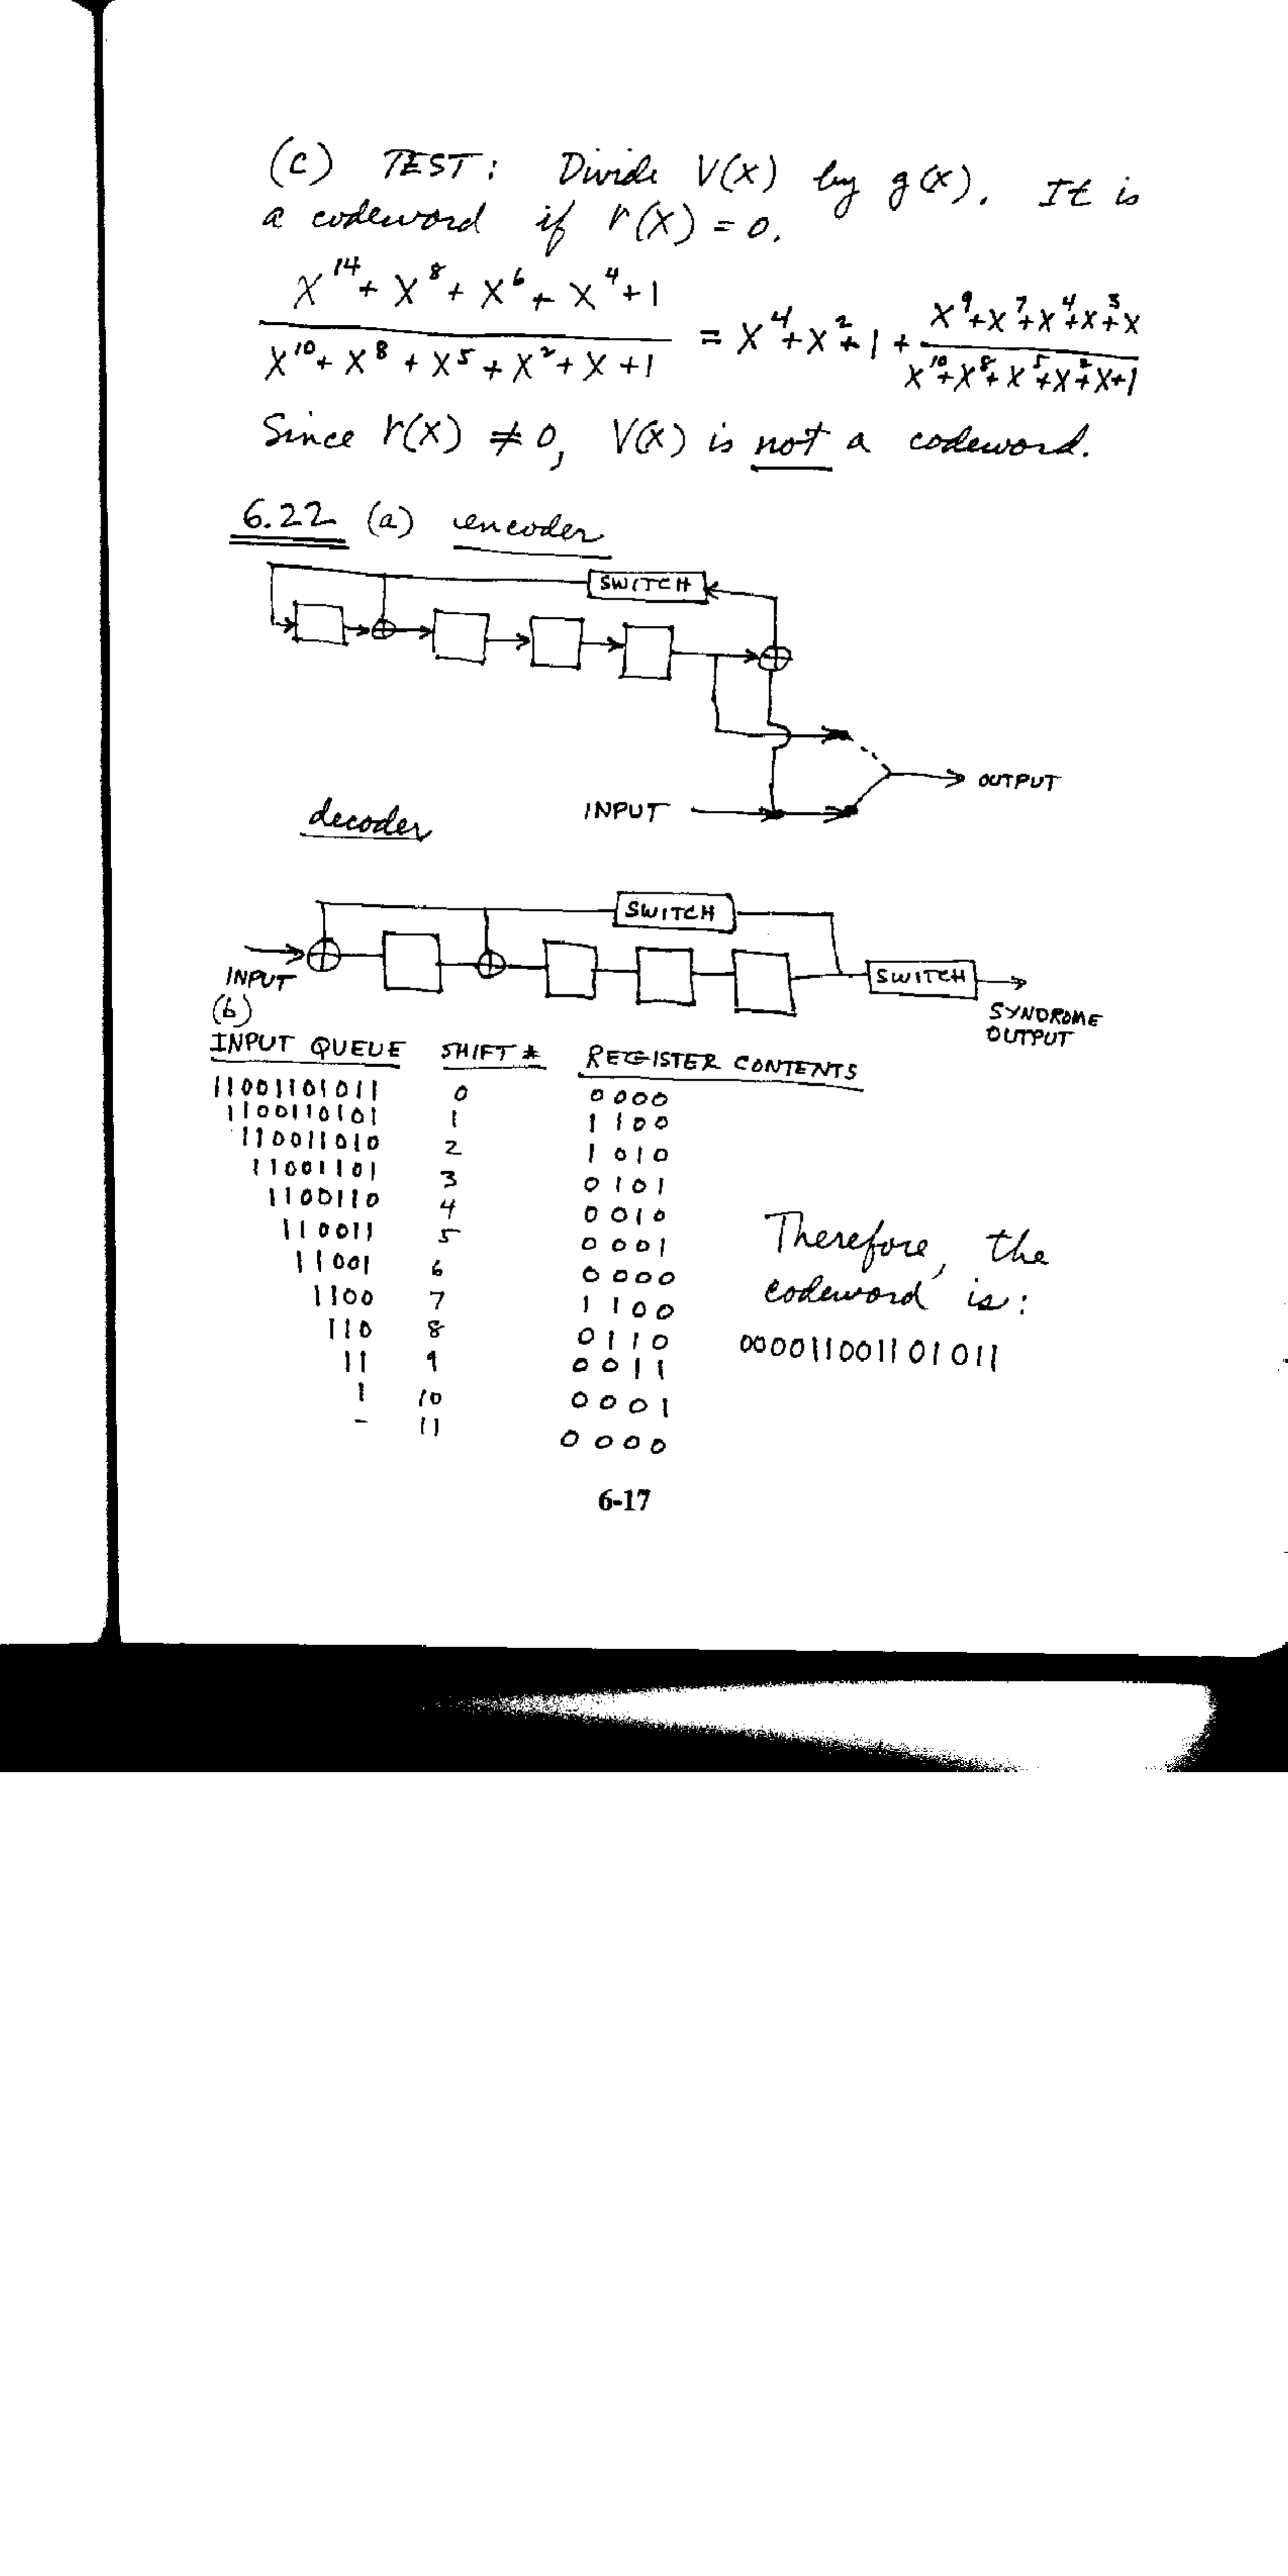 (c) TEST: Divide V(X) by g(X). It is
a codeword if r(X) = 0.
X^14 + X^8 + X^6 + X^4 + 1 / X^10 + X^8 + X^5 + X^2 + X + 1 = X^4 + X^2 + 1 + X^9 + X^7 + X^4 + X^3 + X / X^10 + X^8 + X^5 + X^2 + X + 1
Since r(X) ≠ 0, V(X) is not a codeword.
6.22 (a) encoder
SWITCH
OUTPUT
INPUT
decoder
SWITCH
INPUT
SWITCH
SYNDROME
OUTPUT
(b)
INPUT QUEUE SHIFT # REGISTER CONTENTS
11001101011 0 0000
1100110101 1 1100
110011010 2 1010
11001101 3 0101
1100110 4 0010
110011 5 0001
11001 6 0000
1100 7 1100
110 8 0110
11 9 0011
1 10 0001
- 11 0000
Therefore, the
codeword is:
000011001101011
6-17